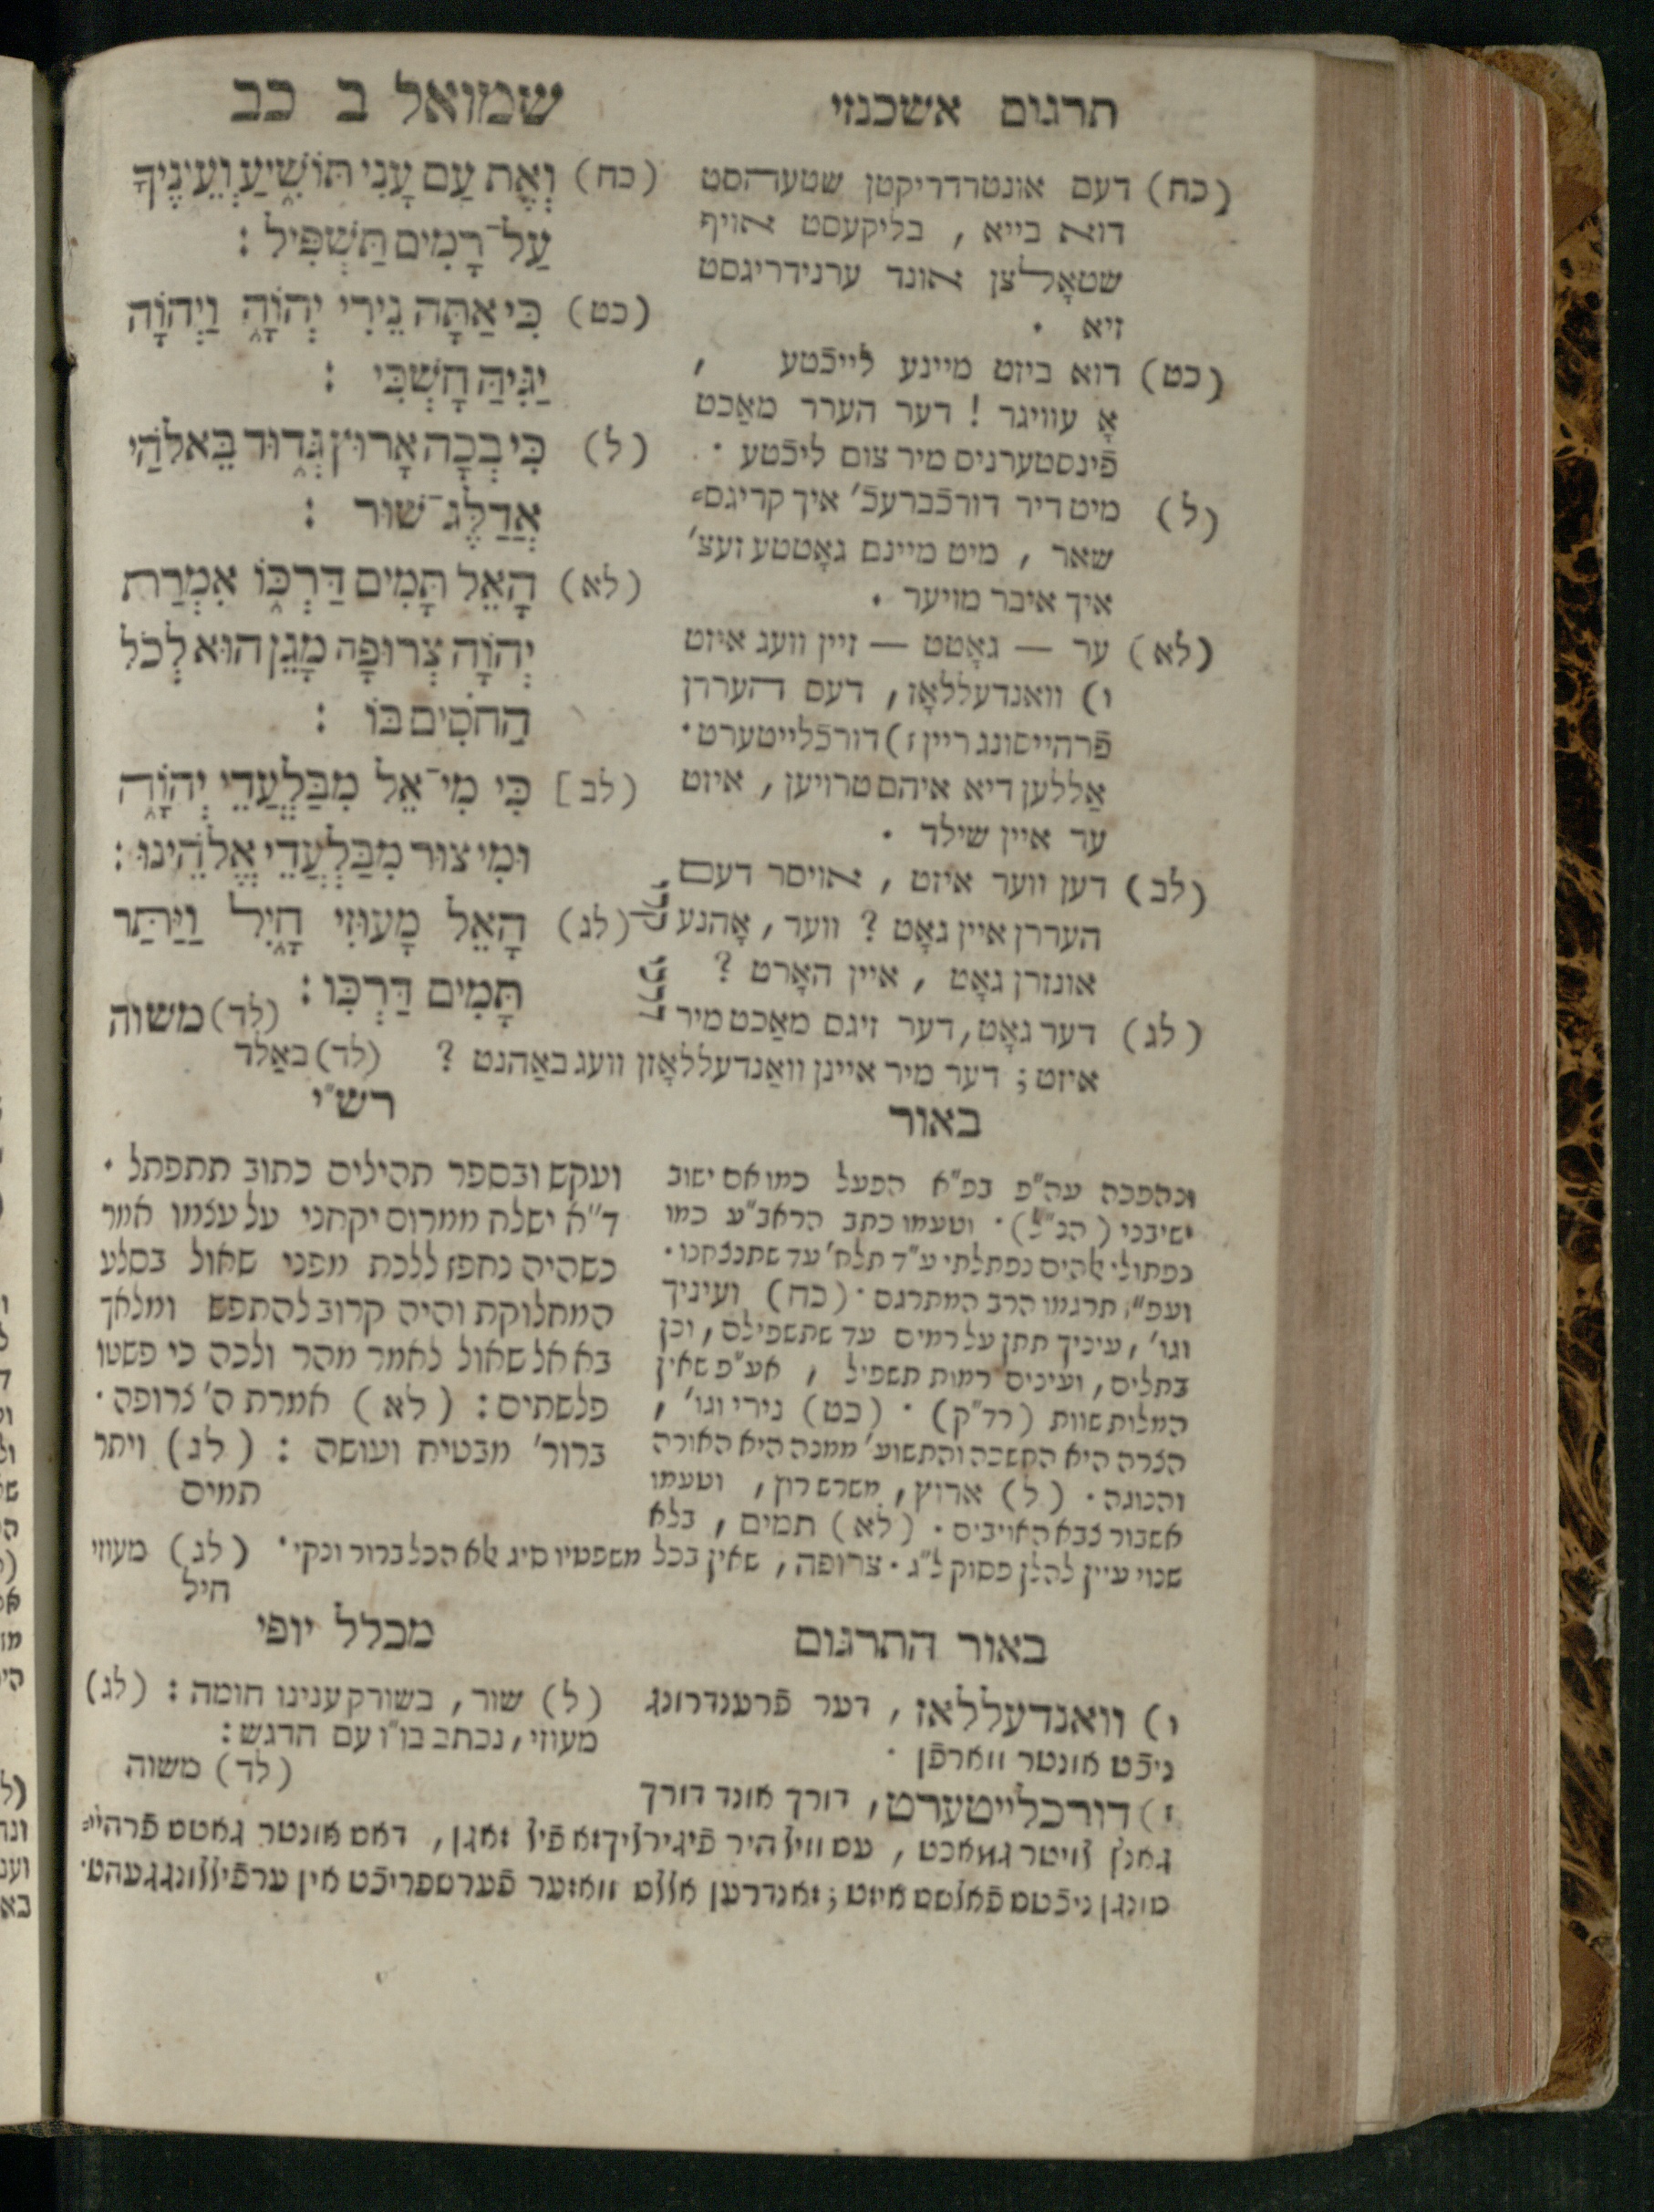 תרגום אשכנזי
שמואל ב כב
(כח) דעם אונטרדריקטן שטעהסט
דוא בייא, בליקעסט אויף
שטאָלצן אונד ערנידריגסט
זיא .
(כט) דוא ביזט מיינע לייכֿטע ,
אָ עוויגר! דער הערר מאַכט
פֿינסטערניס מיר צום ליכֿטע .
(ל) מיט דיר דורכֿברעכֿ' איך קריגס⸗
שאר, מיט מיינם גאָטטע זעצ'
איך איבר מויער .
(לא) ער — גאָטט — זיין וועג איזט
ו) וואנדעללאָז, דעם העררן
פֿרהייסונג ריין ז) דורכֿלייטערט .
אַללען דיא איהם טרויען, איזט
ער איין שילד .
(לב) דען ווער איזט, אויסר דעם
העררן איין גאָט? ווער, אָהנע
אונזרן גאָט, איין האָרט?
(לג) דער גאָט, דער זיגם מאַכט מיר
איזט; דער מיר איינן וואַנדעללאָזן וועג באַהנט? (לד) באַלד
(כח) וְאֶת עַם עָנִי תּוֹשִׁיעַ וְעֵינֶיךָ
עַל־רָמִים תַּשְׁפִּיל :
(כט) כִּי אַתָּה נֵירִי יְהוָֹה וַיהוָֹה
יַגִּיהַּ חָשְׁכִּי :
(ל) כִּי בְכָה אָרוּץ גְּדוּד בֵּאלֹהַי
אֲדַלֶּג־שׁוּר :
(לא) הָאֵל תָּמִים דַּרְכּוֹ אִמְרַת
יְהוָֹה צְרוּפָה מָגֵן הוּא לְכֹל
הַחֹסִים בּוֹ :
(לב] כִּי מִי־אֵל מִבַּלְעֲדֵי יְהוָֹה
וּמִי צוּר מִבַּלְעֲדֵי אֱלֹהֵינוּ :
(לג) הָאֵל מָעוּזִּי חָיִל וַיַּתֵּר
תָּמִים דַּרְכִּו :
קרי
דרכי
(לד) משוה
באור
ונהפכה עה"פ בפ"א הפעל כמו אם ישוב
ישיבני (הנ"ל). וטעמו כתב הראב"ע כמו
נפתולי אלהים נפתלתי ע"ד תלח' עד שתנצחנו .
ועפ"ז תרגמו הרב המתרגם. (כח) ועיניך
וגו', עיניך תתן על רמים עד שתשפילם, וכן
בתלים, ועינים רמות תשפיל, אע"פ שאין
המלות שוות (רד"ק). (כט) נירי וגו',
הצרה היא החשכה והתשוע' ממנה היא האורה
והנוגה. (ל) ארוץ, משרש רוץ, וטעמו
אשבור צבא האויבים. (לא) תמים, בלא
שנוי עיין להלן פסוק ל"ג. צרופה, שאין בכל משפטיו סיג אלא הכל ברור ונקי. (לג) מעוזי
חיל
רש"י
ועקש ובספר תהילים כתוב תתפתל .
ד"א ישלח ממרום יקחני על עצמו אמר
כשהיה נחפז ללכת מפני שאול בסלע
המחלוקת והיה קרוב להתפש ומלאך
בא אל שאול לאמר מהר ולכה כי פשטו
פלשתים : (לא) אמרת ה' צרופה .
ברור' מבטיח ועושה : (לג) ויתר
תמים
באור התרגום
ו) וואנדעללאז, דער פֿרענדרונג
ניכֿט אונטר ווארפֿן .
ז) דורכלייטערט, דורך אונד דורך
גאנץ לויטר געמאכט, עס וויל היר פֿיגירליך זא פֿיל זאגן, דאס אונטר גאטס פֿרהייַ⸗
סונגן ניכֿטס פֿאלשס איזט; זאנדרען אללס וואז ער פֿערשפריכֿט אין ערפֿיללונג געהט .
מכלל יופי
(ל) שור, בשורק ענינו חומה : (לג)
מעוזי, נכתב בו"ו עם הדגש :
(לד) משוה